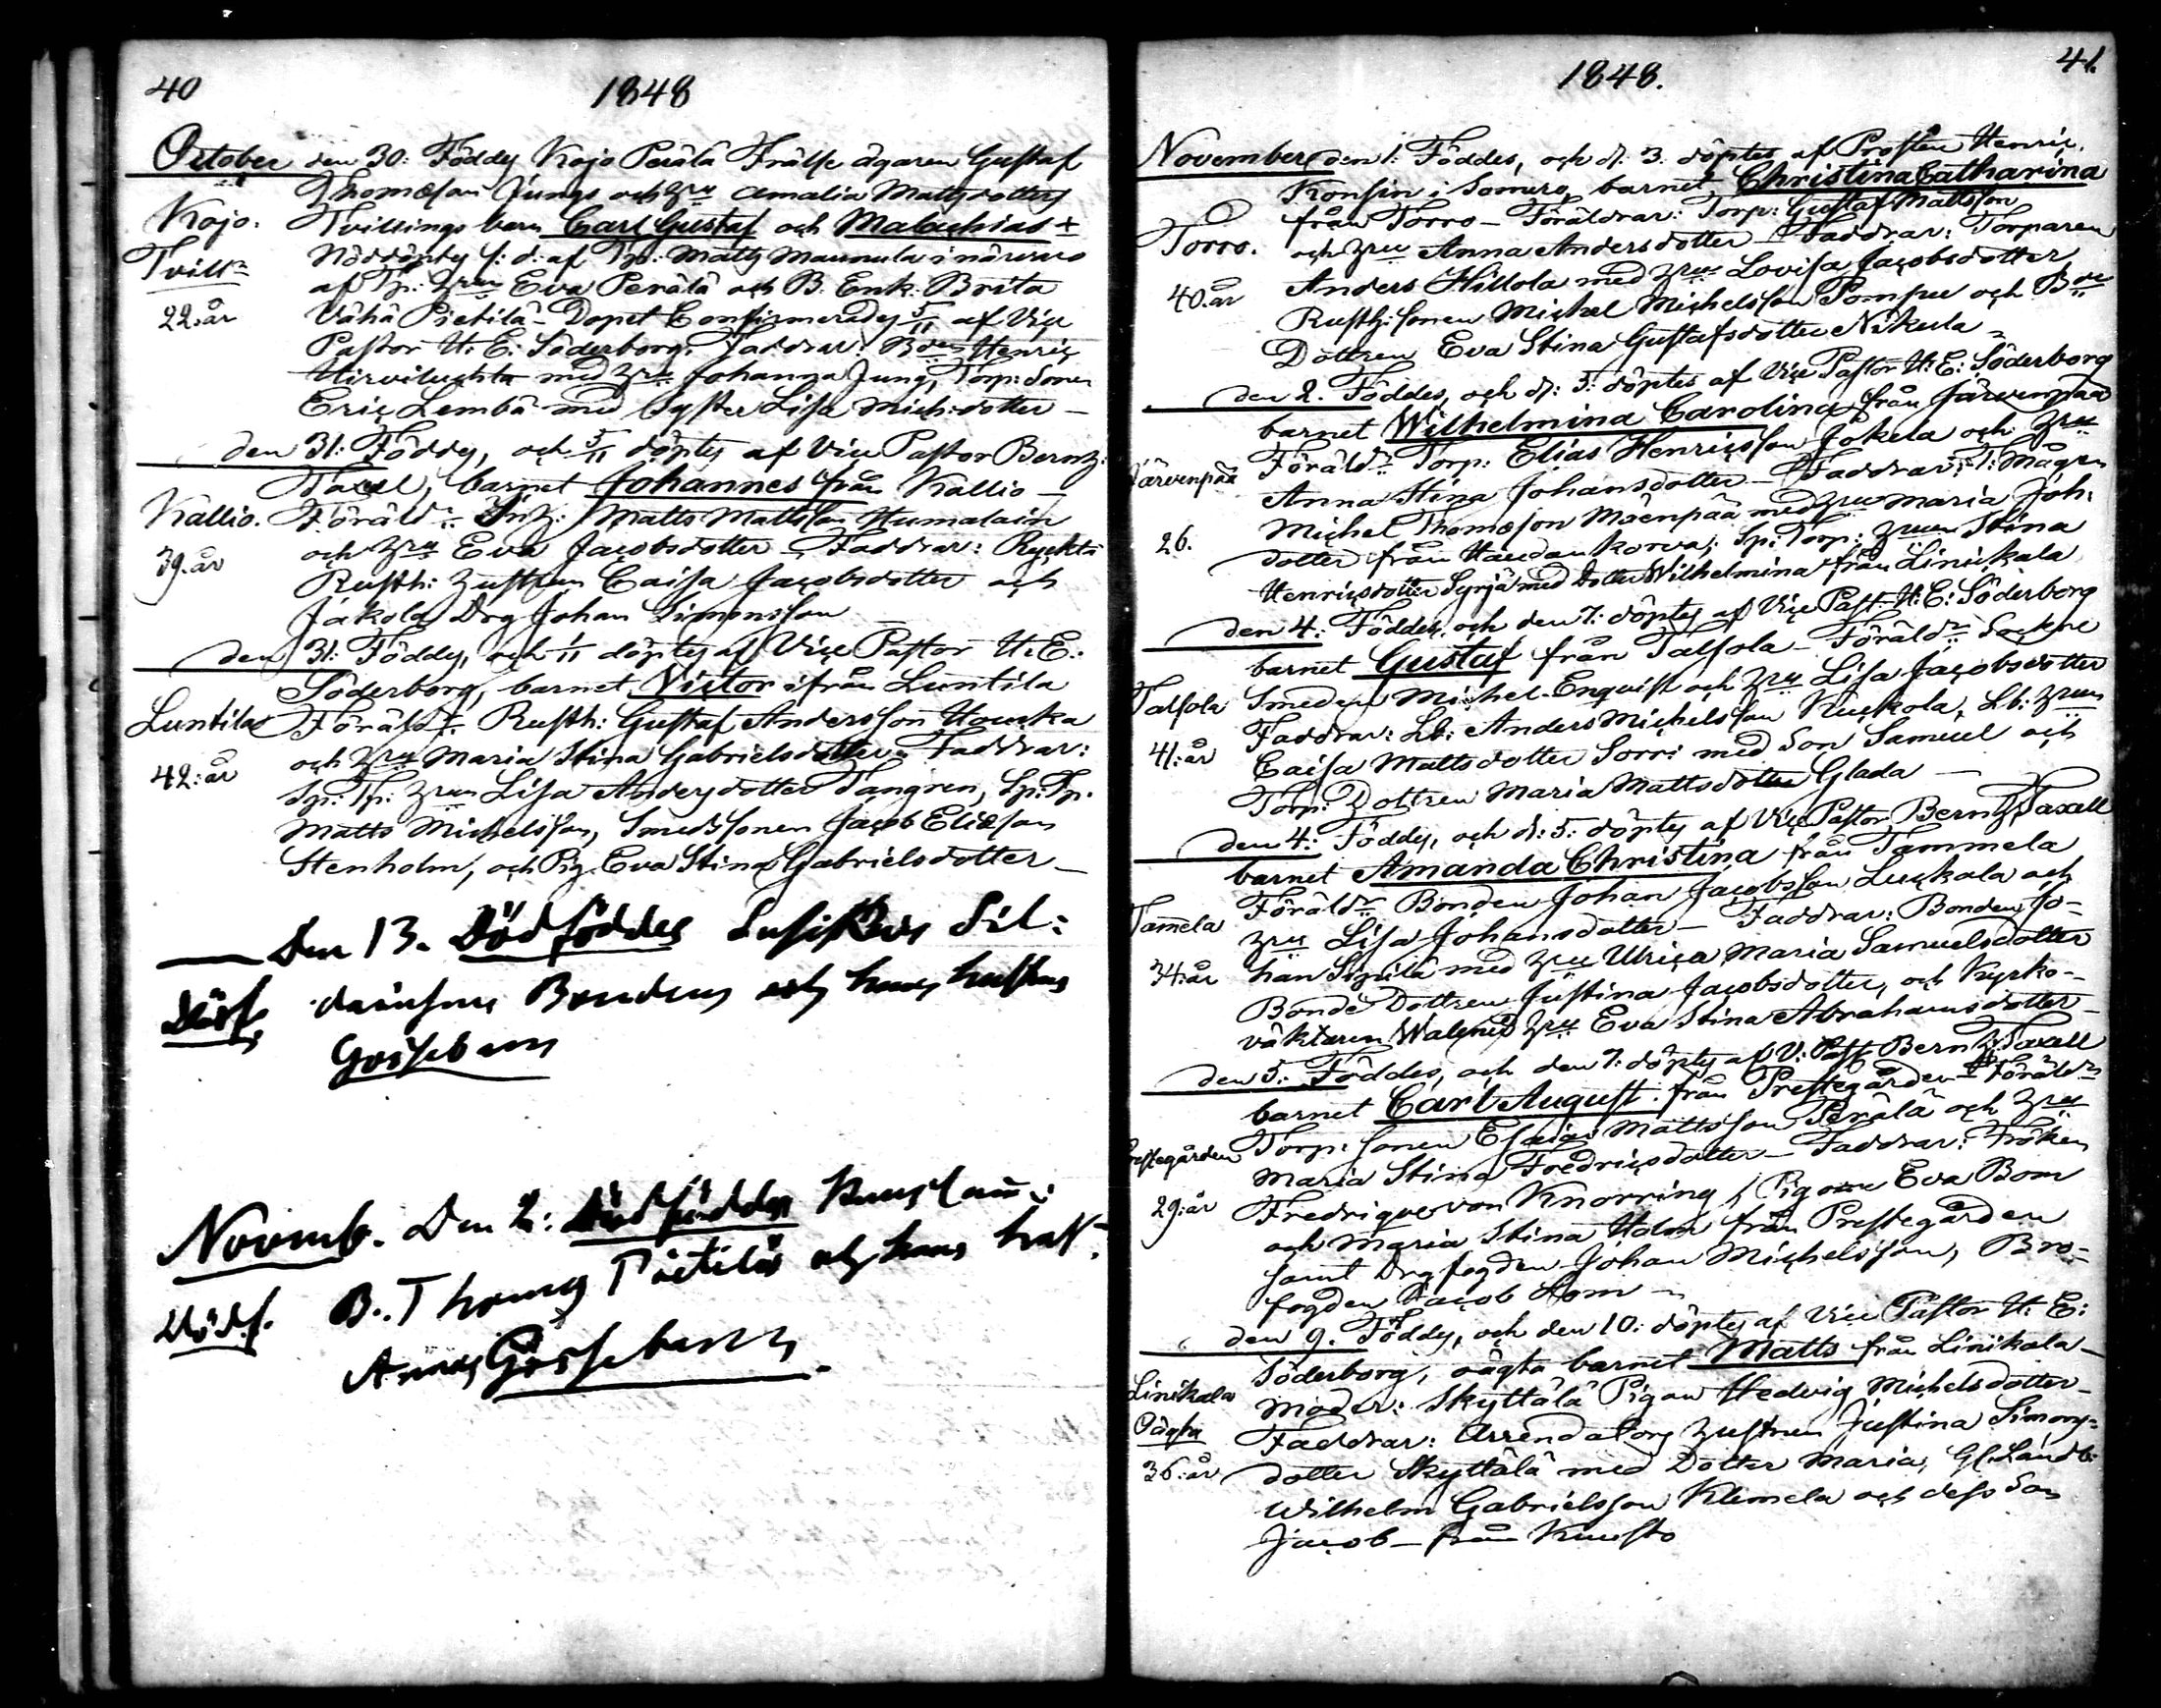 40
1848
October den 30: Föddes Kojo Perälä Frälse ägaren Gustaf
Thomæson Jungs och hustru Amalia Mattsdotters
Kojo. Tvillings barn Carl Gustaf och Malachias +
Tvill:r Nöddöptes s. d. af Tp: Matts Maunula i närvaro
af Tp: Hustrun Eva Perälä och B. Enk. Brita
22. år Vähä Pietilä - Dopet Confirmerades 5/11 af Vice
Pastor H: E: Söderborg. Faddrar: Bden Henric
Hirviluchta med hru Johanna Jung, Torp: Sonen
Eric Lembä med Syster Lisa Mich:dotter -
den 31: Föddes, och 5/11 döptes af Vice Pastor Berntz:
Taxell, barnet Johannes från Kallio -
Kallio. Föräld:r Inh: Matts Mattsson Humalain
och Hru Eva Jacobsdotter - Faddrar: Ryckts
39. år Rusth: Hustrun Caisa Jacobsdotter och
Jakola Drg Johan Simonsson -
den 31: Föddes, och 1/11 döptes af Vice Pastor H: E:
Söderborg, barnet Victor ifrån Luntila
Luntila Föräld:r Rusth: Gustaf Andersson Houska
och Hru Maria Stina Gabrielsdotter. Faddrar:
42: år Sp: Tp: Hrun Lisa Andersdotter Tangren, Sp: Tp.
Matts Michelsson, Smeds Sonen Jacob Eliæson
Stenholm, och Pig. Eva Stina Gabrielsdotter -
Den 13. Dödföddes Susikas Sil:
Dödf. Bondens och hans hustrus
Gossebarn
Novemb. Den 2: Dödföddes
Dödf. B. Thomas Pietilä och hans hust.
Annas Gossebarn.
1848.
41.
November den 1: Föddes, och d: 3. döptes af Prosten Henric
Konsin i Somero, barnet Christina Catharina
Torro. från Torro - Föräldrar: Torp: Gustaf Mattsson
och Hru Anna Andersdotter - Faddrar: Torparen
40. år Anders Hillola med Hru Lovisa Jacobsdotter
Rusth: Sonen Michel Michelsson Pompu och Bde
Dottren Eva Stina Gustafsdotter Nikula -
den 2. Föddes, och d: 5: döptes af Vice Pastor H: E: Söderborg
barnet Wilhelmina Carolina från Järvenpää
Järvenpää Föräld:r Torp: Elias Henricsson Jokela och Hru
Anna Stina Johansdotter - Faddrar: T: Mågen
Michel Thomæson Mäenpää med Hru Maria Joh:
26. dotter från Haudankorva; Sp: Torp: Hrun Stina
Henricsdotter Syrjä med dotter Wilhelmina från Linikala
den 4: Föddes, och den 7: döptes af Vice Past: H: E: Söderborg
barnet Gustaf från Talsola - Föräld:r Sockne
Talsola Smeden Michel Enqvist och Hru Lisa Jacobsdotter
Faddrar: Lb: Anders Michelsson Kuckola, Lb: Hrun
41: år Caisa Mattsdotter Sorri med Son Samuel och
Torp: Dottren Maria Mattsdotter Glada -
den 4: Föddes, och d: 5: döptes af Vice Pastor Berntz Taxell
barnet Amanda Christina från Tammela
Tamela Föräld:r Bonden Johan Jacobsson Luckala och
Hru Lisa Johansdotter - Faddrar: Bonden Jo-
34: år han Sipilä med Hru Ulrica Maria Samuelsdotter
Bonde Dottren Justina Jacobsdotter, och Kyrko-
väktaren Wal med Hru Eva Stina Abrahamsdotter -
den 5: Föddes, och den 7: döptes af V: Past: Berntz: Taxell
barnet Carl August från Prestegården - Föräld:r
Prestegården Torp: Sonen Esaias Mattsson Perälä och Hru
Maria Stina Fredricsdotter - Faddrar: Fröken
29: år Fredrique von Knorring, Pigorne Eva Bom
och Maria Stina Holm från Prestegården
samt Drg fogden Johan Michelsson, Bro-
fogden Jacob Lom -
den 9. Föddes, och den 10: döptes af Vice Pastor H: E:
Söderborg, oägta barnet Matts från Linikala -
Linikala Moder: Skyttälä Pigan Hedvig Michelsdotter -
Oägta Faddrar: Arrendators Hustrun Justina Simons-
36: år dotter Skyttälä med Dotter Maria, Gl. Landb:
Wilhelm Gabrielsson Klemela och dess Son
Jacob - från Kuusto